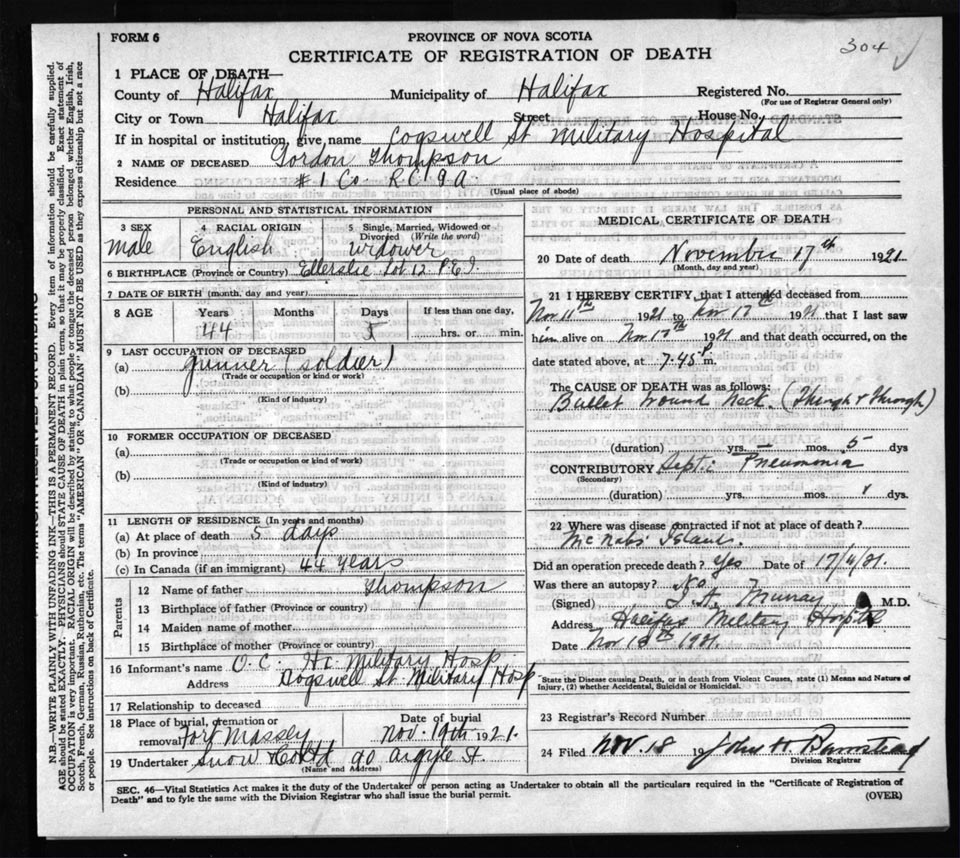 FORM 6
PROVINCE OF NOVA SCOTIA
CERTIFICATE OF REGISTRATION OF DEATH
304
1 PLACE OF DEATH—
County of Halifax Municipality of Halifax Registered No.
(For use of Registrar General only)
City or Town Halifax Street House No.
If in hospital or institution, give name Cogswell St Military Hospital
2 NAME OF DECEASED Gordon Thompson
Residence #1 Co R C G A
(Usual place of abode)
PERSONAL AND STATISTICAL INFORMATION
3 SEX 4 RACIAL ORIGIN 5 Single, Married, Widowed or
Divorced (Write the word)
Male English Widower
6 BIRTHPLACE (Province or Country) Ellerslie Lot 12 P.E.I.
7 DATE OF BIRTH (month, day and year)
8 AGE Years Months Days If less than one day,
44 hrs. or min.
9 LAST OCCUPATION OF DECEASED
(a) Gunner (Soldier)
(Trade or occupation or kind of work)
(b)
(Kind of industry)
10 FORMER OCCUPATION OF DECEASED
(a)
(Trade or occupation or kind of work)
(b)
(Kind of industry)
11 LENGTH OF RESIDENCE (In years and months)
(a) At place of death 5 days
(b) In province
(c) In Canada (if an immigrant) 44 years
Parents
12 Name of father Thompson
13 Birthplace of father (Province or country)
14 Maiden name of mother
15 Birthplace of mother (Province or country)
16 Informant's name O. C. Hx Military Hosp
Address Cogswell St. Military Hosp
17 Relationship to deceased
18 Place of burial, cremation or Date of burial
removal Fort Massey Nov. 19th 1921.
19 Undertaker Snow Co Ltd 90 Argyle St.
(Name and Address)
MEDICAL CERTIFICATE OF DEATH
20 Date of death November 17th 1921
(Month, day and year)
21 I HEREBY CERTIFY, that I attended deceased from
Nov 11th 1921 to Nov 17 1921 that I last saw
him alive on Nov 17th 1921 and that death occurred, on the
date stated above, at 7.45 P m.
The CAUSE OF DEATH was as follows:
Bullet Wound Neck (Through & Through)
(duration) yrs. mos. 5 dys
CONTRIBUTORY Septic Pneumonia
(Secondary)
(duration) yrs. mos. dys.
22 Where was disease contracted if not at place of death?
McNabs Island.
Did an operation precede death? Yes Date of
Was there an autopsy? No
(Signed) Murray M.D.
Address Halifax Military Hospital
Date Nov 18th 1921.
State the Disease causing Death, or in death from Violent Causes, state (1) Means and Nature of
Injury, (2) whether Accidental, Suicidal or Homicidal.
23 Registrar's Record Number
24 Filed Nov. 18 19 John H.
Division Registrar
SEC. 46—Vital Statistics Act makes it the duty of the Undertaker or person acting as Undertaker to obtain all the particulars required in the "Certificate of Registration of
Death" and to fyle the same with the Division Registrar who shall issue the burial permit.
(OVER)
N.B.—WRITE PLAINLY WITH UNFADING INK—THIS IS A PERMANENT RECORD. Every item of information should be carefully supplied.
AGE should be stated EXACTLY. PHYSICIANS should STATE CAUSE OF DEATH in plain terms, so that it may be properly classified. Exact statement of
OCCUPATION is very important. RACIAL ORIGIN will be described by stating to what people or tongue the deceased person belonged whether English, Irish,
Scotch, French, German, Russian, Ruthenian, etc. The terms "AMERICAN" OR "CANADIAN" MUST NOT BE USED as they express citizenship but not a race
or people. See instructions on back of Certificate.